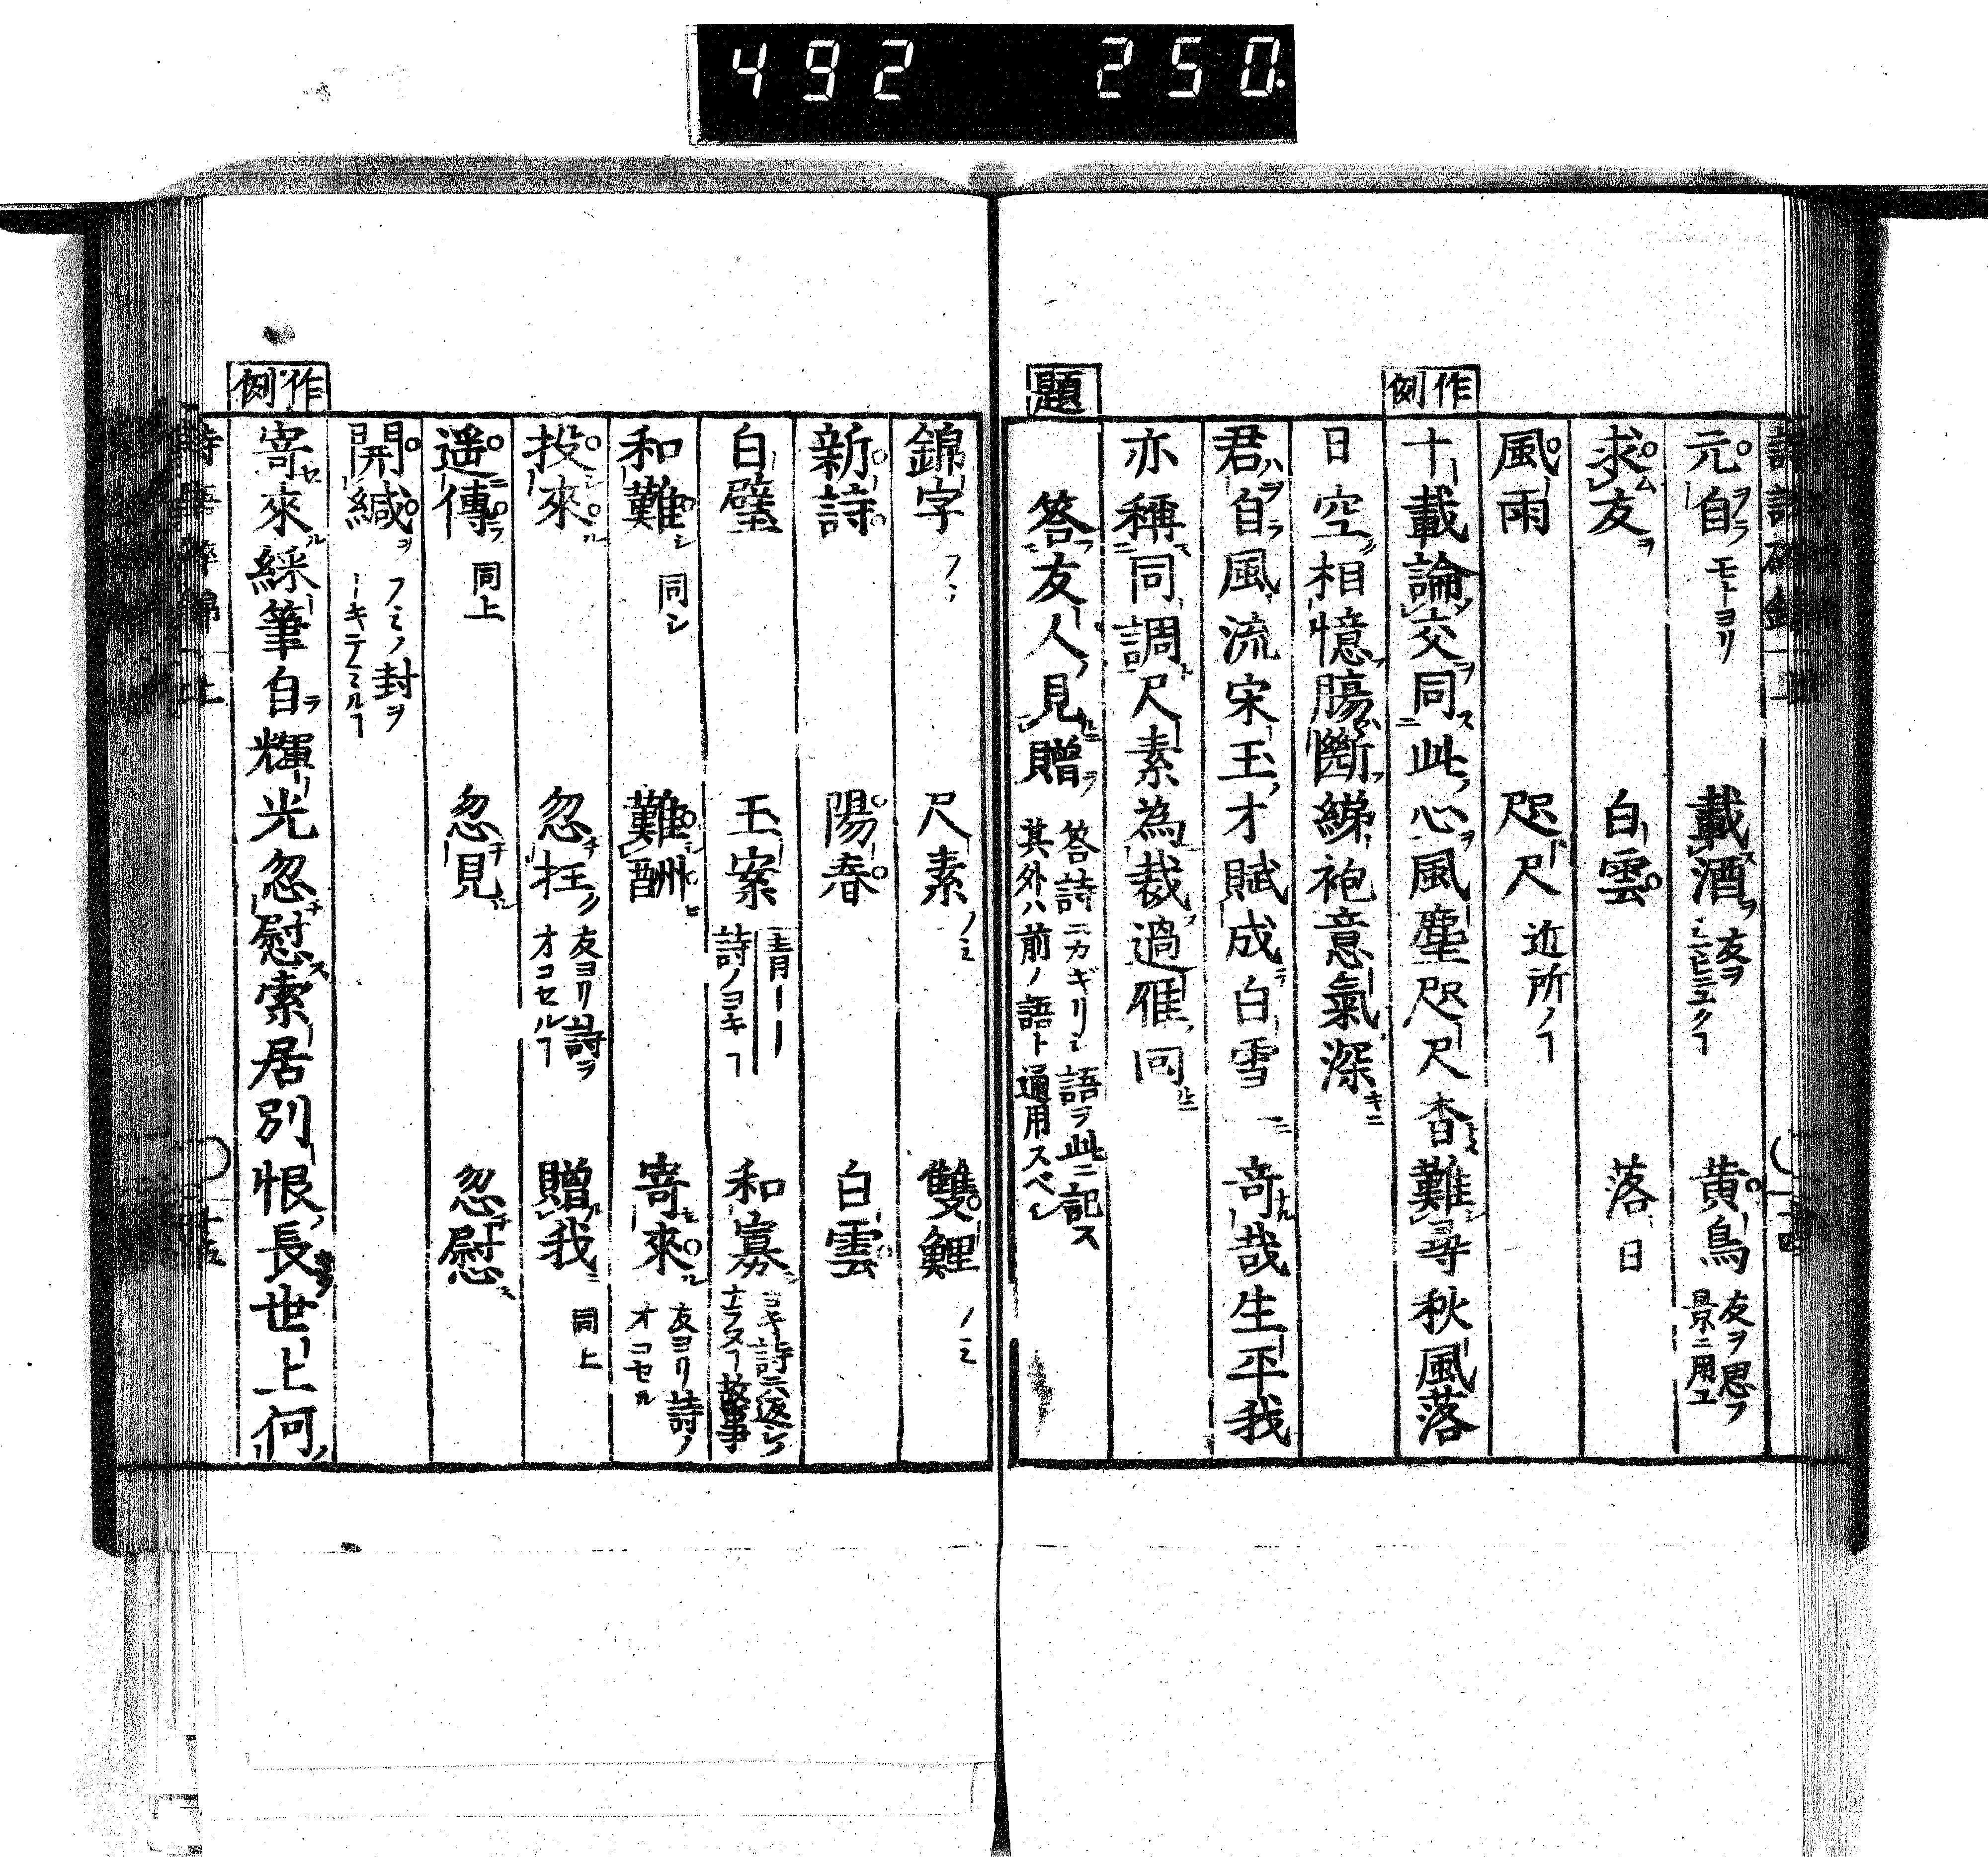 492 250
元自 モトヨリ 載酒 友ヲ 黄鳥 友ヲ思フ景ニ用ユ
求友 白雲 落日
風雨 咫尺 近所ノコ
作例
十載論交同此心風塵咫尺杳難尋秋風落
日空相憶腸斷綈袍意氣深
君自風流宋玉才賦成白雪一奇哉生平我
亦稱同調尺素為裁過雁回
題
答友人見贈 答詩ニカギリシ語ヲ此ニ記ス
其外ハ前ノ語ト通用スベシ
錦字 フミ 尺素 フミ 雙鯉 フミ
新詩 陽春 白雲
白璧 玉案 青ーー詩ノヨキコ 和寡 ヨキ詩ニハ返シノナラヌコ故事
和難 同シ 難酬 寄來 友ヨリ詩ノオコセル
投來 忽枉 友ヨリ詩ヲオコセルコ 贈我 同上
遥傳 同上 忽見 忽慰
開緘 フミノ封ヲヒーキテミルコ
作例
寄來綵筆自輝光忽慰索居別恨長世上何